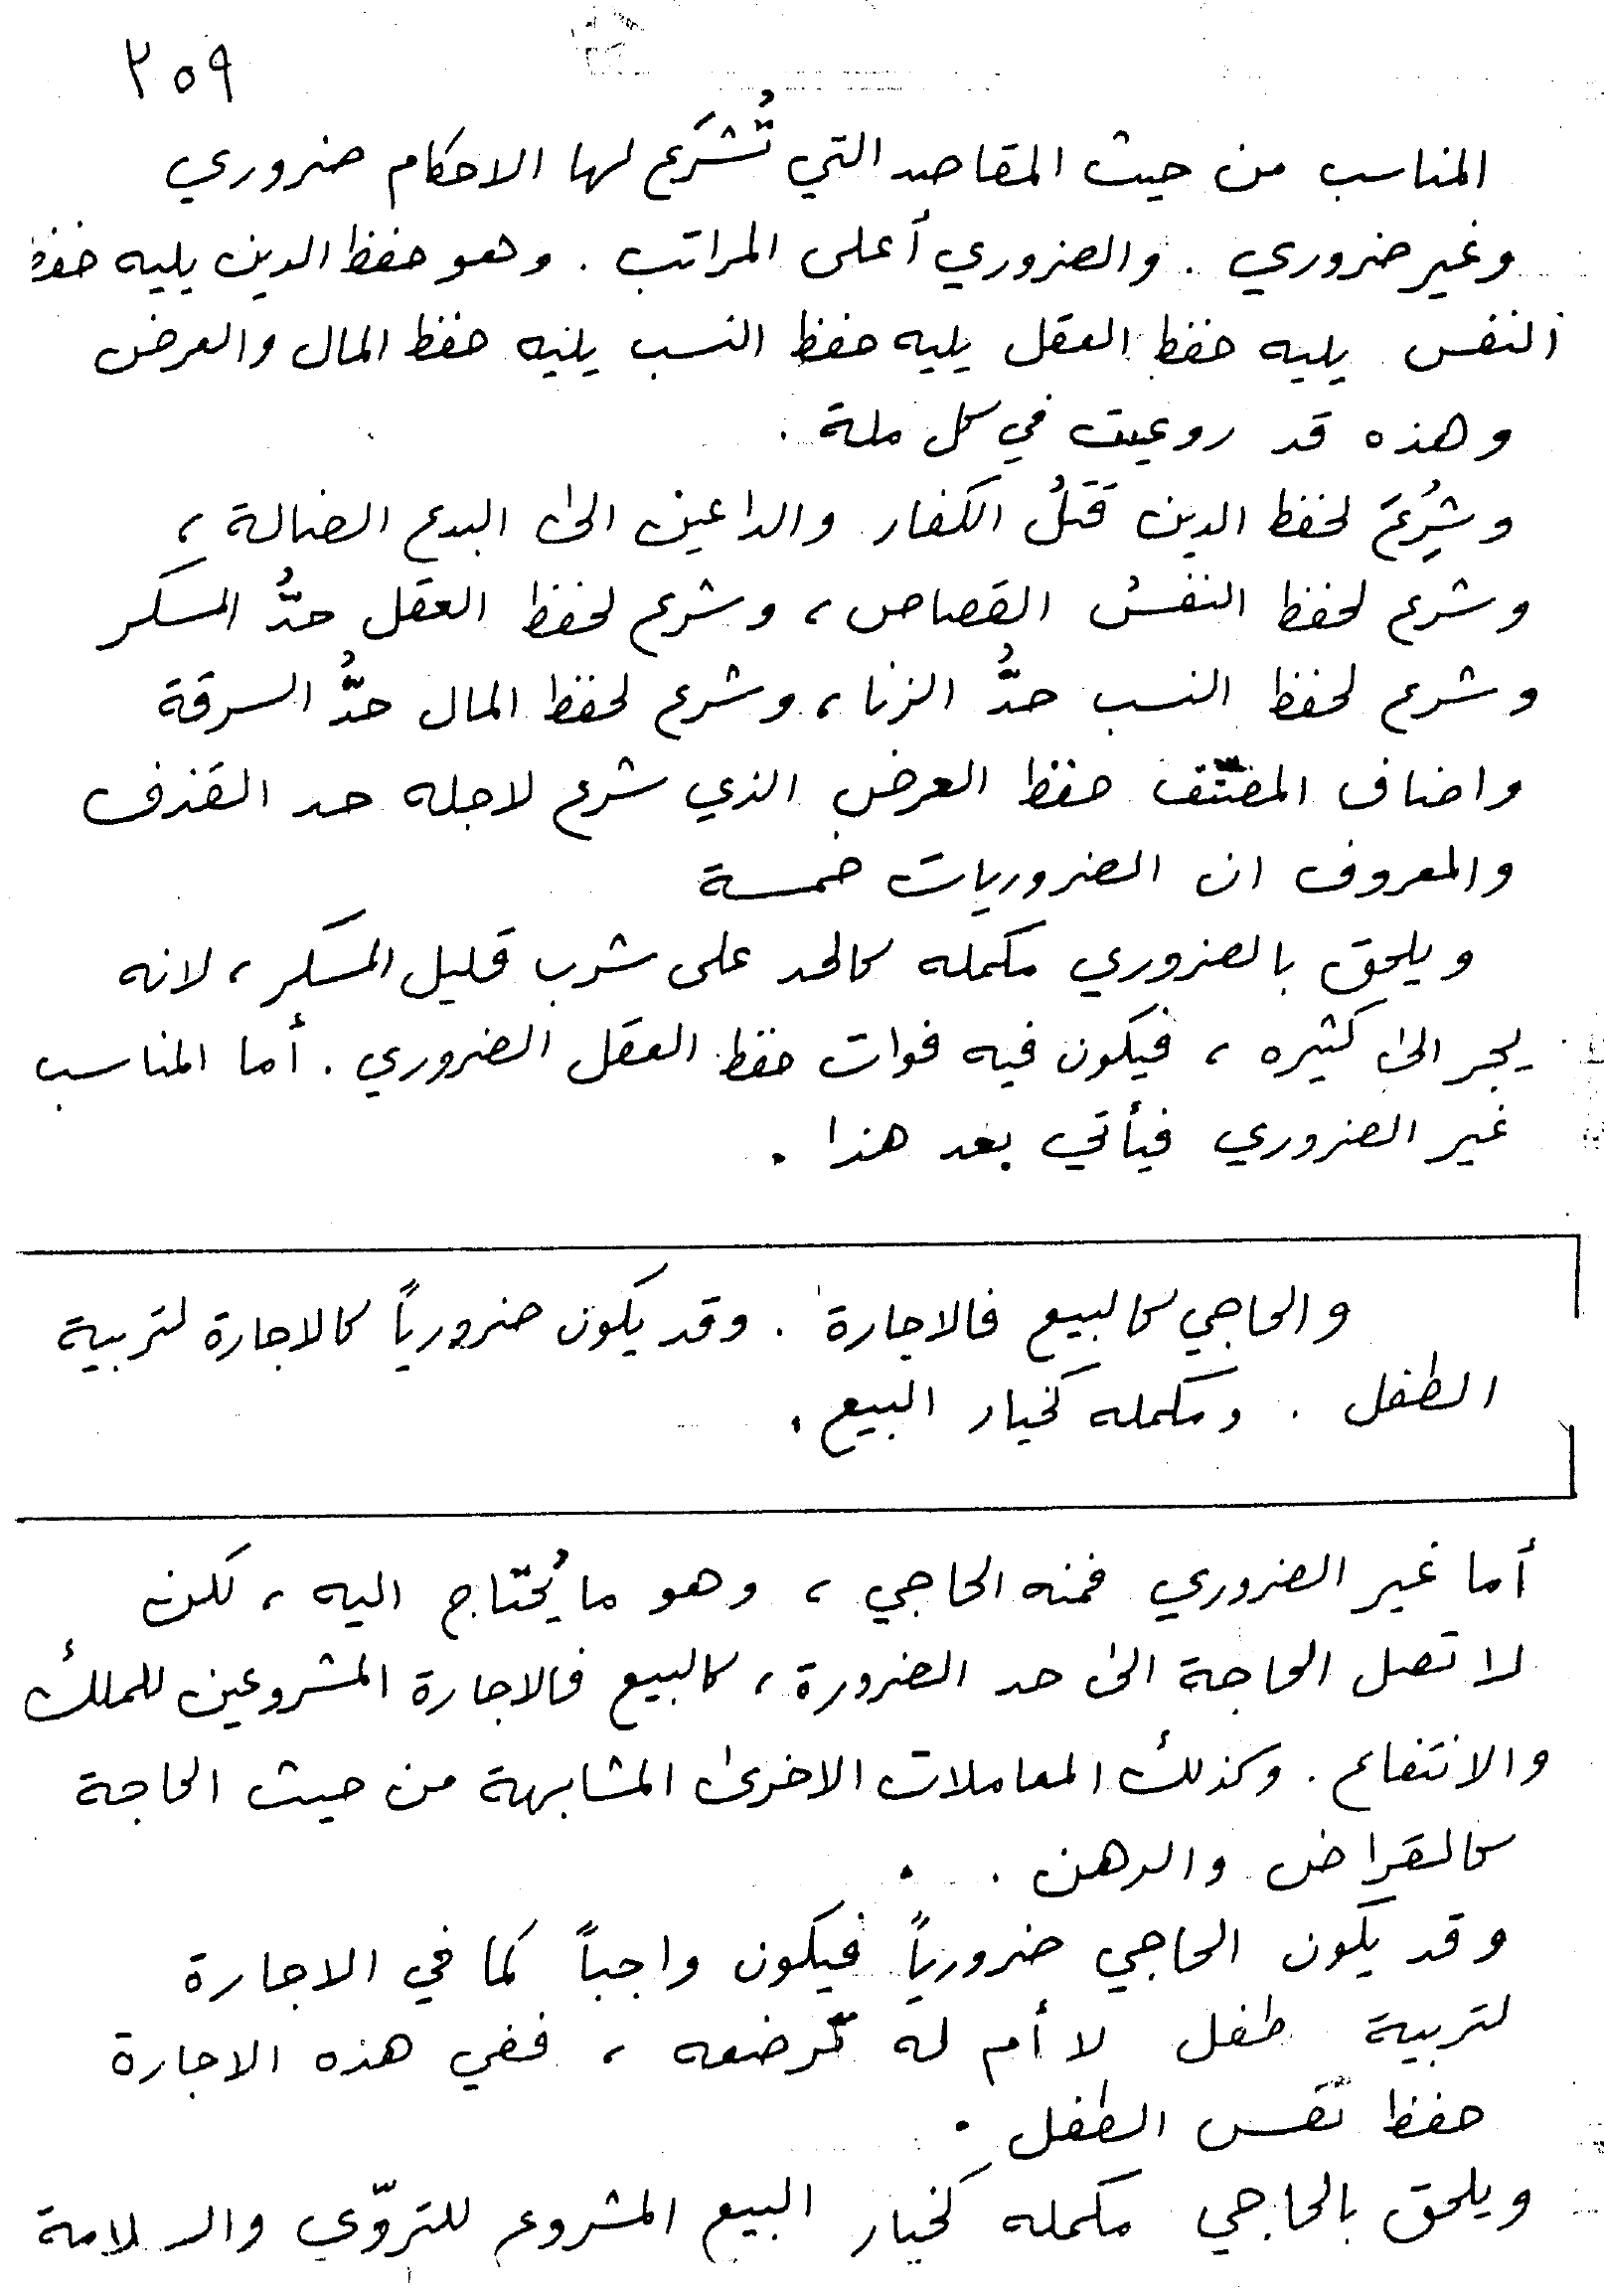 ٢٥٩
المناسب من حيث المقاصد التي تُشرَع لها الاحكام ضروري
وغير ضروري . والضروري أعلى المراتب . وهو حفظ الدين يليه حفظ
النفس يليه حفظ العقل يليه حفظ النسب يليه حفظ المال والعرض
وهذه قد روعيت في كل ملة .
وشُرِعَ لحفظ الدين قَتلُ الكفار والداعين الى البدع الضالة ،
وشرع لحفظ النفس القصاص ، وشرع لحفظ العقل حدُّ المسكر
وشرع لحفظ النسب حدُّ الزنا ، وشرع لحفظ المال حدُّ السرقة
واضاف المصنف حفظ العرض الذي شرع لاجله حد القذف
والمعروف ان الضروريات خمسة
ويلحق بالضروري مكمله كالحد على شرب قليل المسكر ، لانه
يجر الى كثيره ، فيكون فيه فوات حفظ العقل الضروري . أما المناسب
غير الضروري فيأتي بعد هذا .
والحاجي كالبيع فالاجارة . وقد يكون ضرورياً كالاجارة لتربية
الطفل . ومكمله كخيار البيع .
أما غير الضروري فمنه الحاجي ، وهو ما يُحتاج اليه ، لكن
لا تصل الحاجة الى حد الضرورة ، كالبيع فالاجارة المشروعين للملك
والانتفاع . وكذلك المعاملات الاخرى المشابهة من حيث الحاجة
كالقراض والرهن .
وقد يكون الحاجي ضرورياً فيكون واجباً كما في الاجارة
لتربية طفل لا أم له ترضعه ، ففي هذه الاجارة
حفظ نفس الطفل .
ويلحق بالحاجي مكمله كخيار البيع المشروع للتروّي والسلامة